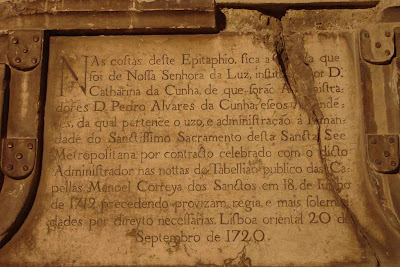 NAs costas deste Epitaphio, fica a C que
foi de Nossa Senhora da Luz, instit por D.
Catharina da Cunha, de que forão A istra
dores D. Pedro Alvares da Cunha, e seos ende
tes, da qual pertence o uzo, e administração á Irman
dade do Sanctissimo Sacramento desta Sancta See
Metropolitana, por contracto celebrado com o dicto
Administrador nas nottas do Tabelliaõ publico das Ca
pellas Manoel Correya dos Sanctos em 18. de Iunho
de 1712 precedendo provizam regia, e mais solemni
dades por direyto necessarias. Lisboa oriental 20 de
Septembro de 1720.